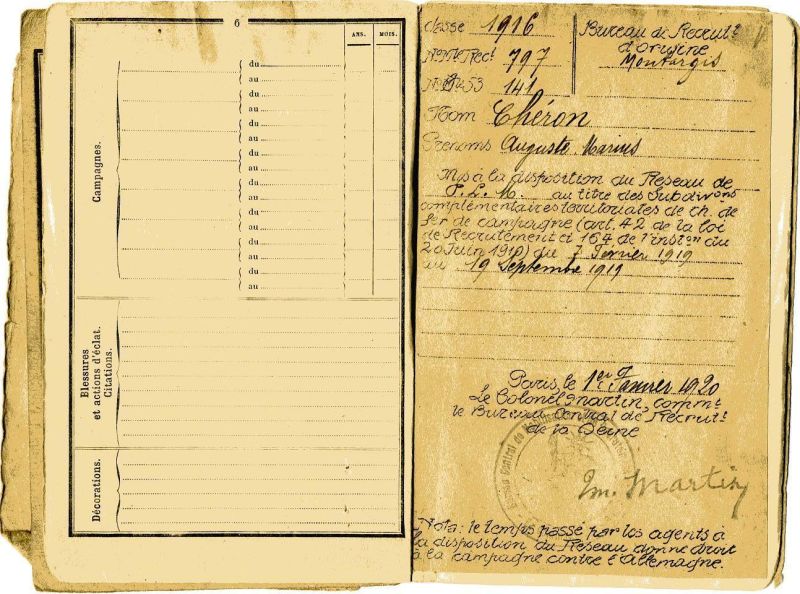 6
ANS. MOIS.
Campagnes.
du
au
du
au
du
au
du
au
du
au
du
au
du
au
du
au
Blessures
et actions d'éclat.
Citations.
Décorations.
Classe 1916
Bureau de Recrutt
d'Origine
Montargis
Rect 797
141
Nom Chéron
Prénoms Auguste Marius
Mis à la disposition du Réseau de
P. L. M. au titre des Subdivons
complémentaires territoriales de ch. de
fer de campagne (art. 42 de la loi
de Recrutement et 164 de l'inston du
20 Juin 1910) du 7 Février 1919
au 19 Septembre 1919
Paris, le 1er Janvier 1920
Le Colonel Martin, commt
le Bureau Central de Recrutt
de la Seine
Bureau Central de
M. Martin
Nota: le temps passé par les agents à
la disposition du Réseau donne droit
à la campagne contre l'Allemagne.